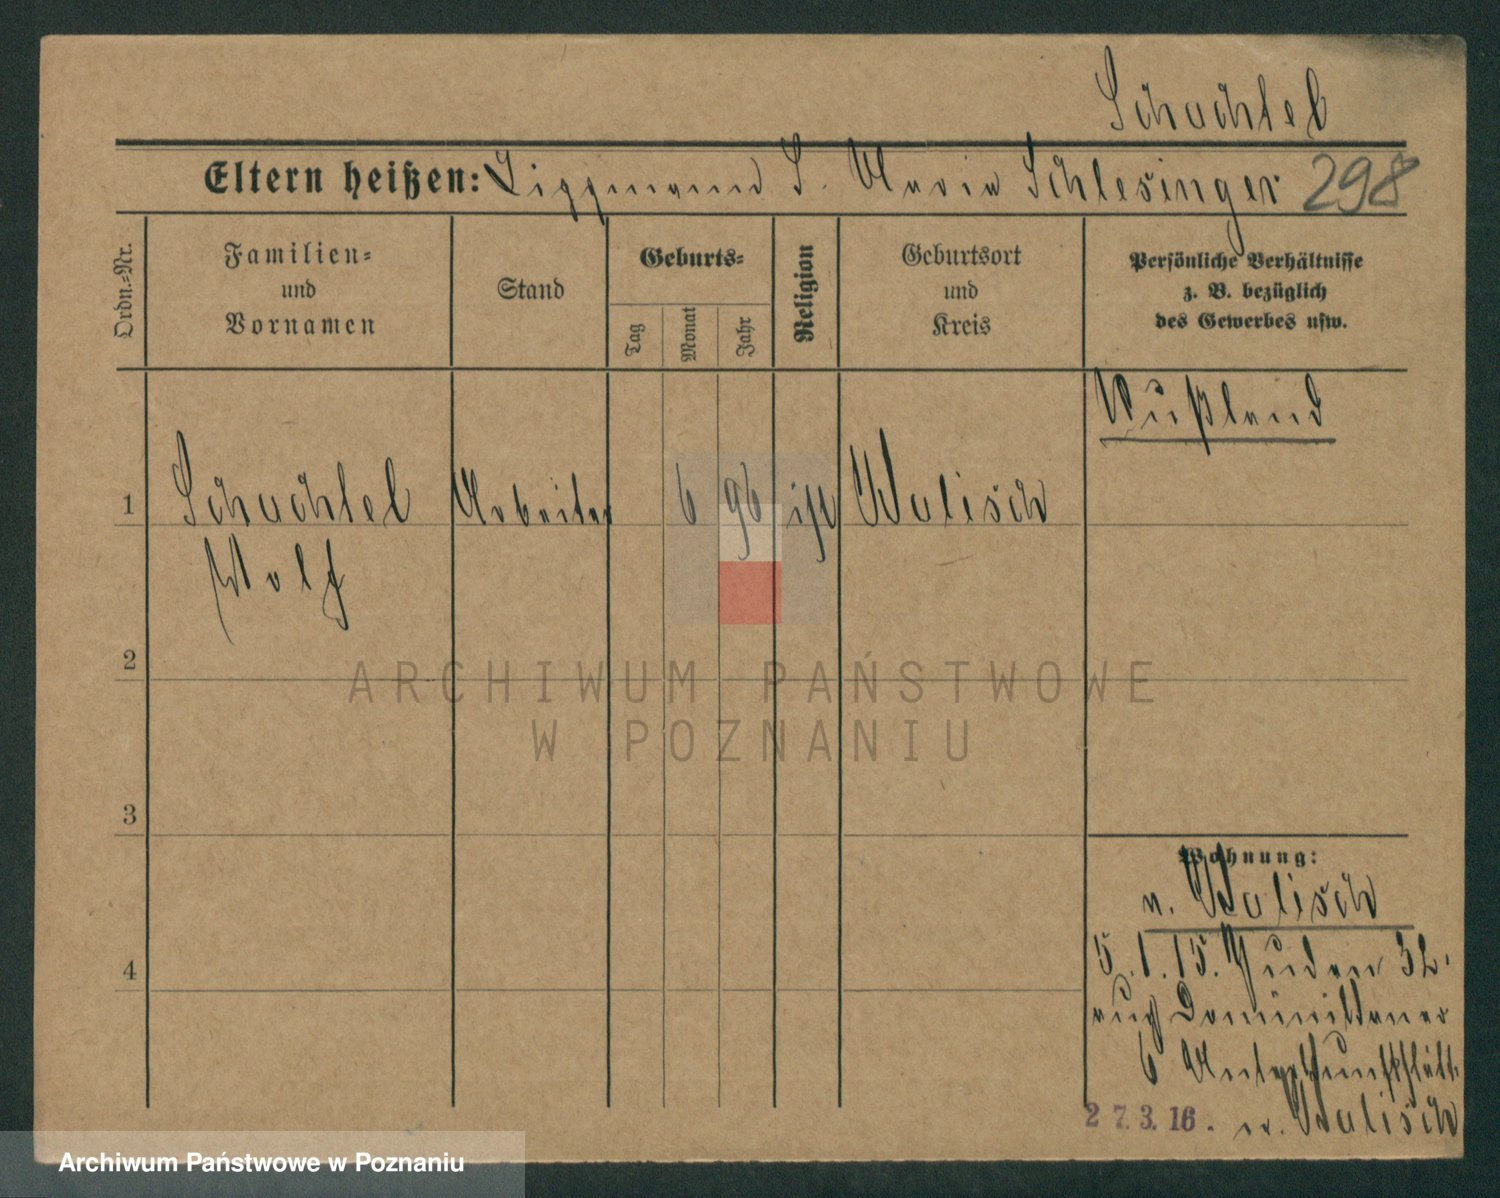 Schachtel
Eltern heißen: Lippmann S. Maria Schlesinger 298
Ordn.-Nr.
Familien-
und
Vornamen
Stand
Geburts-
Tag
Monat
Jahr
Religion
Geburtsort
und
Kreis
Persönliche Verhältnisse
z. B. bezüglich
des Gewerbes usw.
Rußland
1 Schachtel Arbeiter 6 96 isr Walisch
Wolf
2
3
4
Wohnung:
n. Walisch
5.1.15. Juden 32.
Dominikaner
6
27.3.16. n. Walisch
ARCHIWUM PAŃSTWOWE
W POZNANIU
Archiwum Państwowe w Poznaniu